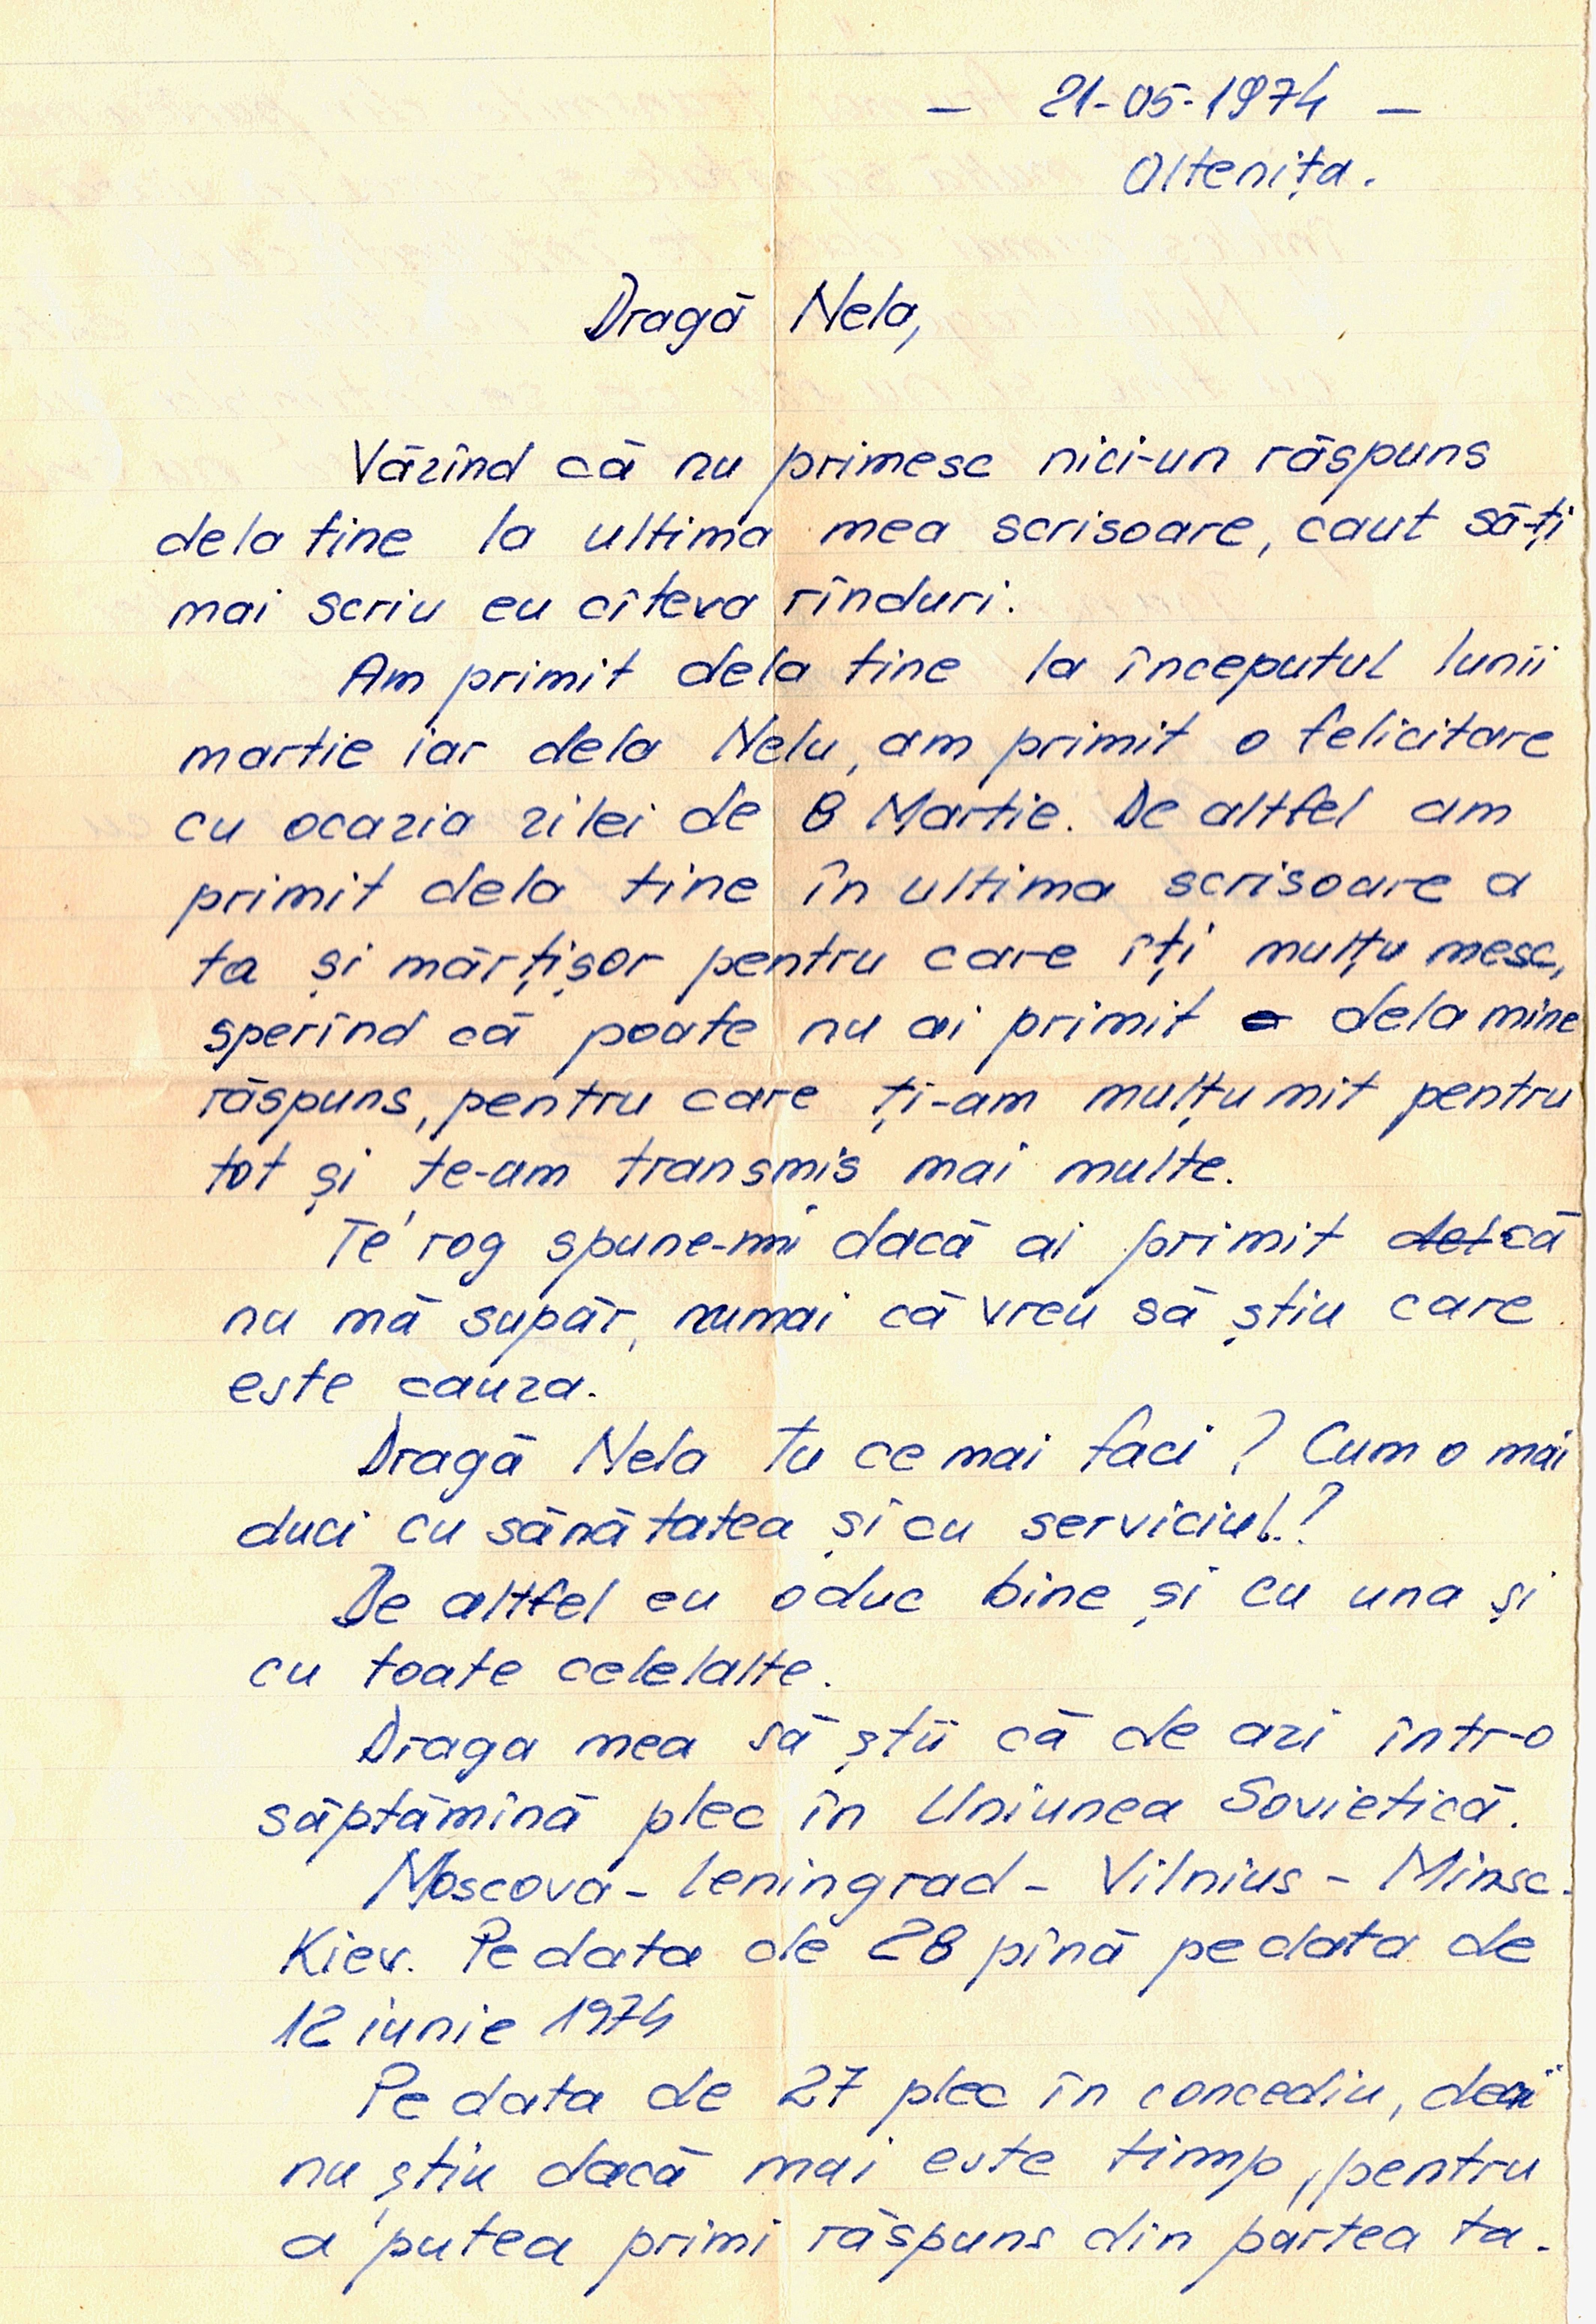 — 21-05-1974 —
Oltenița.
Dragă Nela,
Văzînd că nu primesc nici-un răspuns
dela tine la ultima mea scrisoare, caut să-ți
mai scriu eu cîteva rînduri.
Am primit dela tine la începutul lunii
martie iar dela Nelu, am primit o felicitare
cu ocazia zilei de 8 Martie. De altfel am
primit dela tine în ultima scrisoare a
ta și mărțișor pentru care îți mulțumesc,
sperînd că poate nu ai primit dela mine
răspuns, pentru care ți-am mulțumit pentru
tot și te-am transmis mai multe.
Te rog spune-mi dacă ai primit că
nu mă supăr, numai că vreu să știu care
este cauza.
Dragă Nela tu ce mai faci? Cum o mai
duci cu sănătatea și cu serviciul.?
De altfel eu o duc bine și cu una și
cu toate celelalte.
Draga mea să știi că de azi într-o
săptămînă plec în Uniunea Sovietică.
Moscova - Leningrad - Vilnius - Minsc -
Kiev. Pe data de 28 pînă pe data de
12 iunie 1974
Pe data de 27 plec în concediu, deci
nu știu dacă mai este timp, pentru
a putea primi răspuns din partea ta.